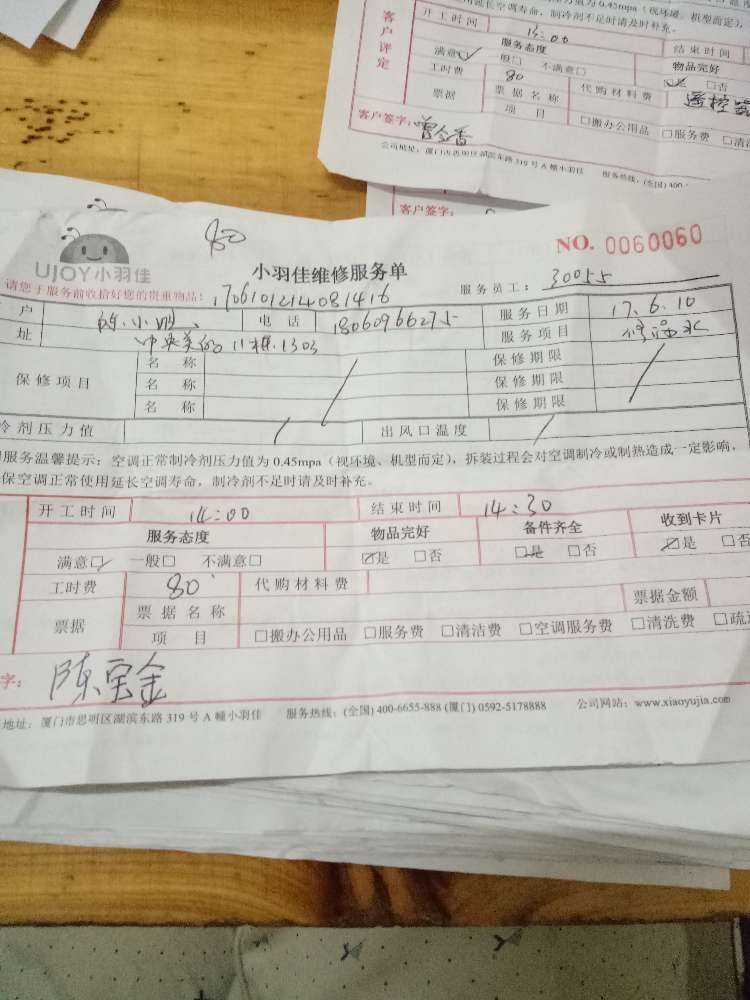 值为0.45mpa（视环境、机型而定），
延长空调寿命，制冷剂不足时请及时补充。
客户评定
开工时间 13:00 结束时间
服务态度 物品完好
满意☑ 一般□ 不满意□ ☑是 □否
工时费 80 代购材料费 遥控器
票据 票据名称
项 目 □搬办公用品 □服务费
客户签字:
公司地址：厦门市思明区湖滨东路319号A幢小羽佳 服务热线：(全国) 400-
客户签字:
80
UJOY小羽佳
小羽佳维修服务单
NO. 0060060
请您于服务前收拾好您的贵重物品：
1706101214081416
服务员工： 30055
户 陈小明 电 话 18060966275 服务日期 17.6.10
址 中央美的11栋.1303 服务项目 修漏水
保修项目 名 称 保修期限
名 称 保修期限
名 称 保修期限
冷剂压力值 / 出风口温度 /
服务温馨提示：空调正常制冷剂压力值为 0.45mpa（视环境、机型而定），拆装过程会对空调制冷或制热造成一定影响，
保空调正常使用延长空调寿命，制冷剂不足时请及时补充。
开工时间 14:00 结束时间 14:30
服务态度 物品完好 备件齐全 收到卡片
满意☑ 一般□ 不满意□ ☑是 □否 ☑是 □否 ☑是 □否
工时费 80 代购材料费
票据 票据名称 票据金额
项 目 □搬办公用品 □服务费 □清洁费 □空调服务费 □清洗费 □疏
字: 陈宝金
地址：厦门市思明区湖滨东路 319 号 A 幢小羽佳 服务热线：(全国) 400-6655-888 (厦门) 0592-5178888 公司网站：www.xiaoyujia.com